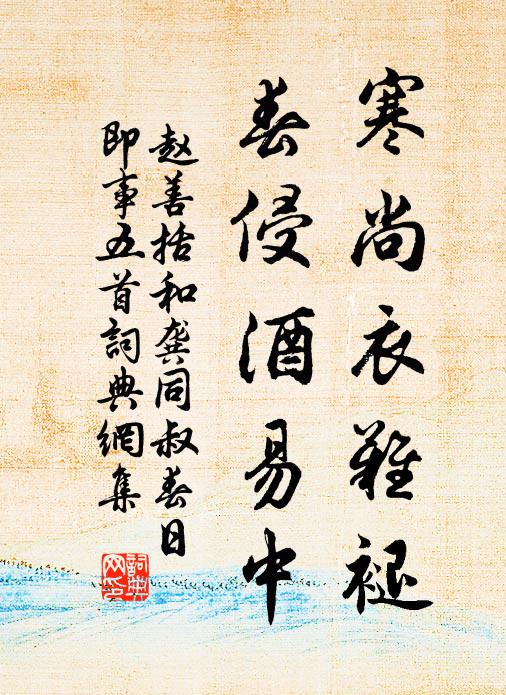 寒尚衣难褪
春侵酒易中
赵善括和龚同叔春日
即事五首詞典網集
詞典
网印